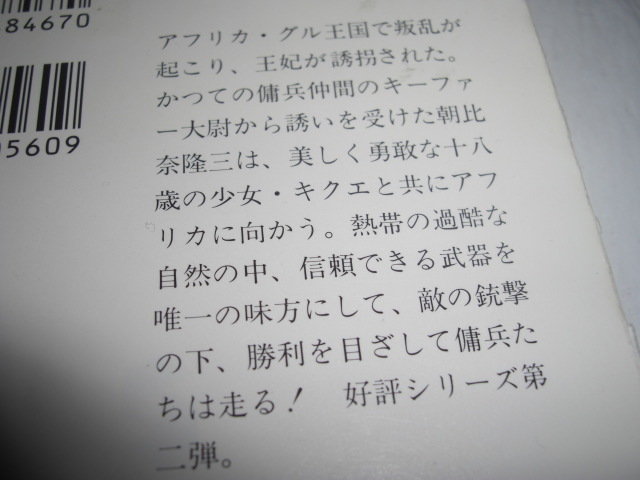 484670
5609
アフリカ・グル王国で叛乱が
起こり、王妃が誘拐された。
かつての傭兵仲間のキーファ
ー大尉から誘いを受けた朝比
奈隆三は、美しく勇敢な十八
歳の少女・キクエと共にアフ
リカに向かう。熱帯の過酷な
自然の中、信頼できる武器を
唯一の味方にして、敵の銃撃
の下、勝利を目ざして傭兵た
ちは走る！　好評シリーズ第
二弾。